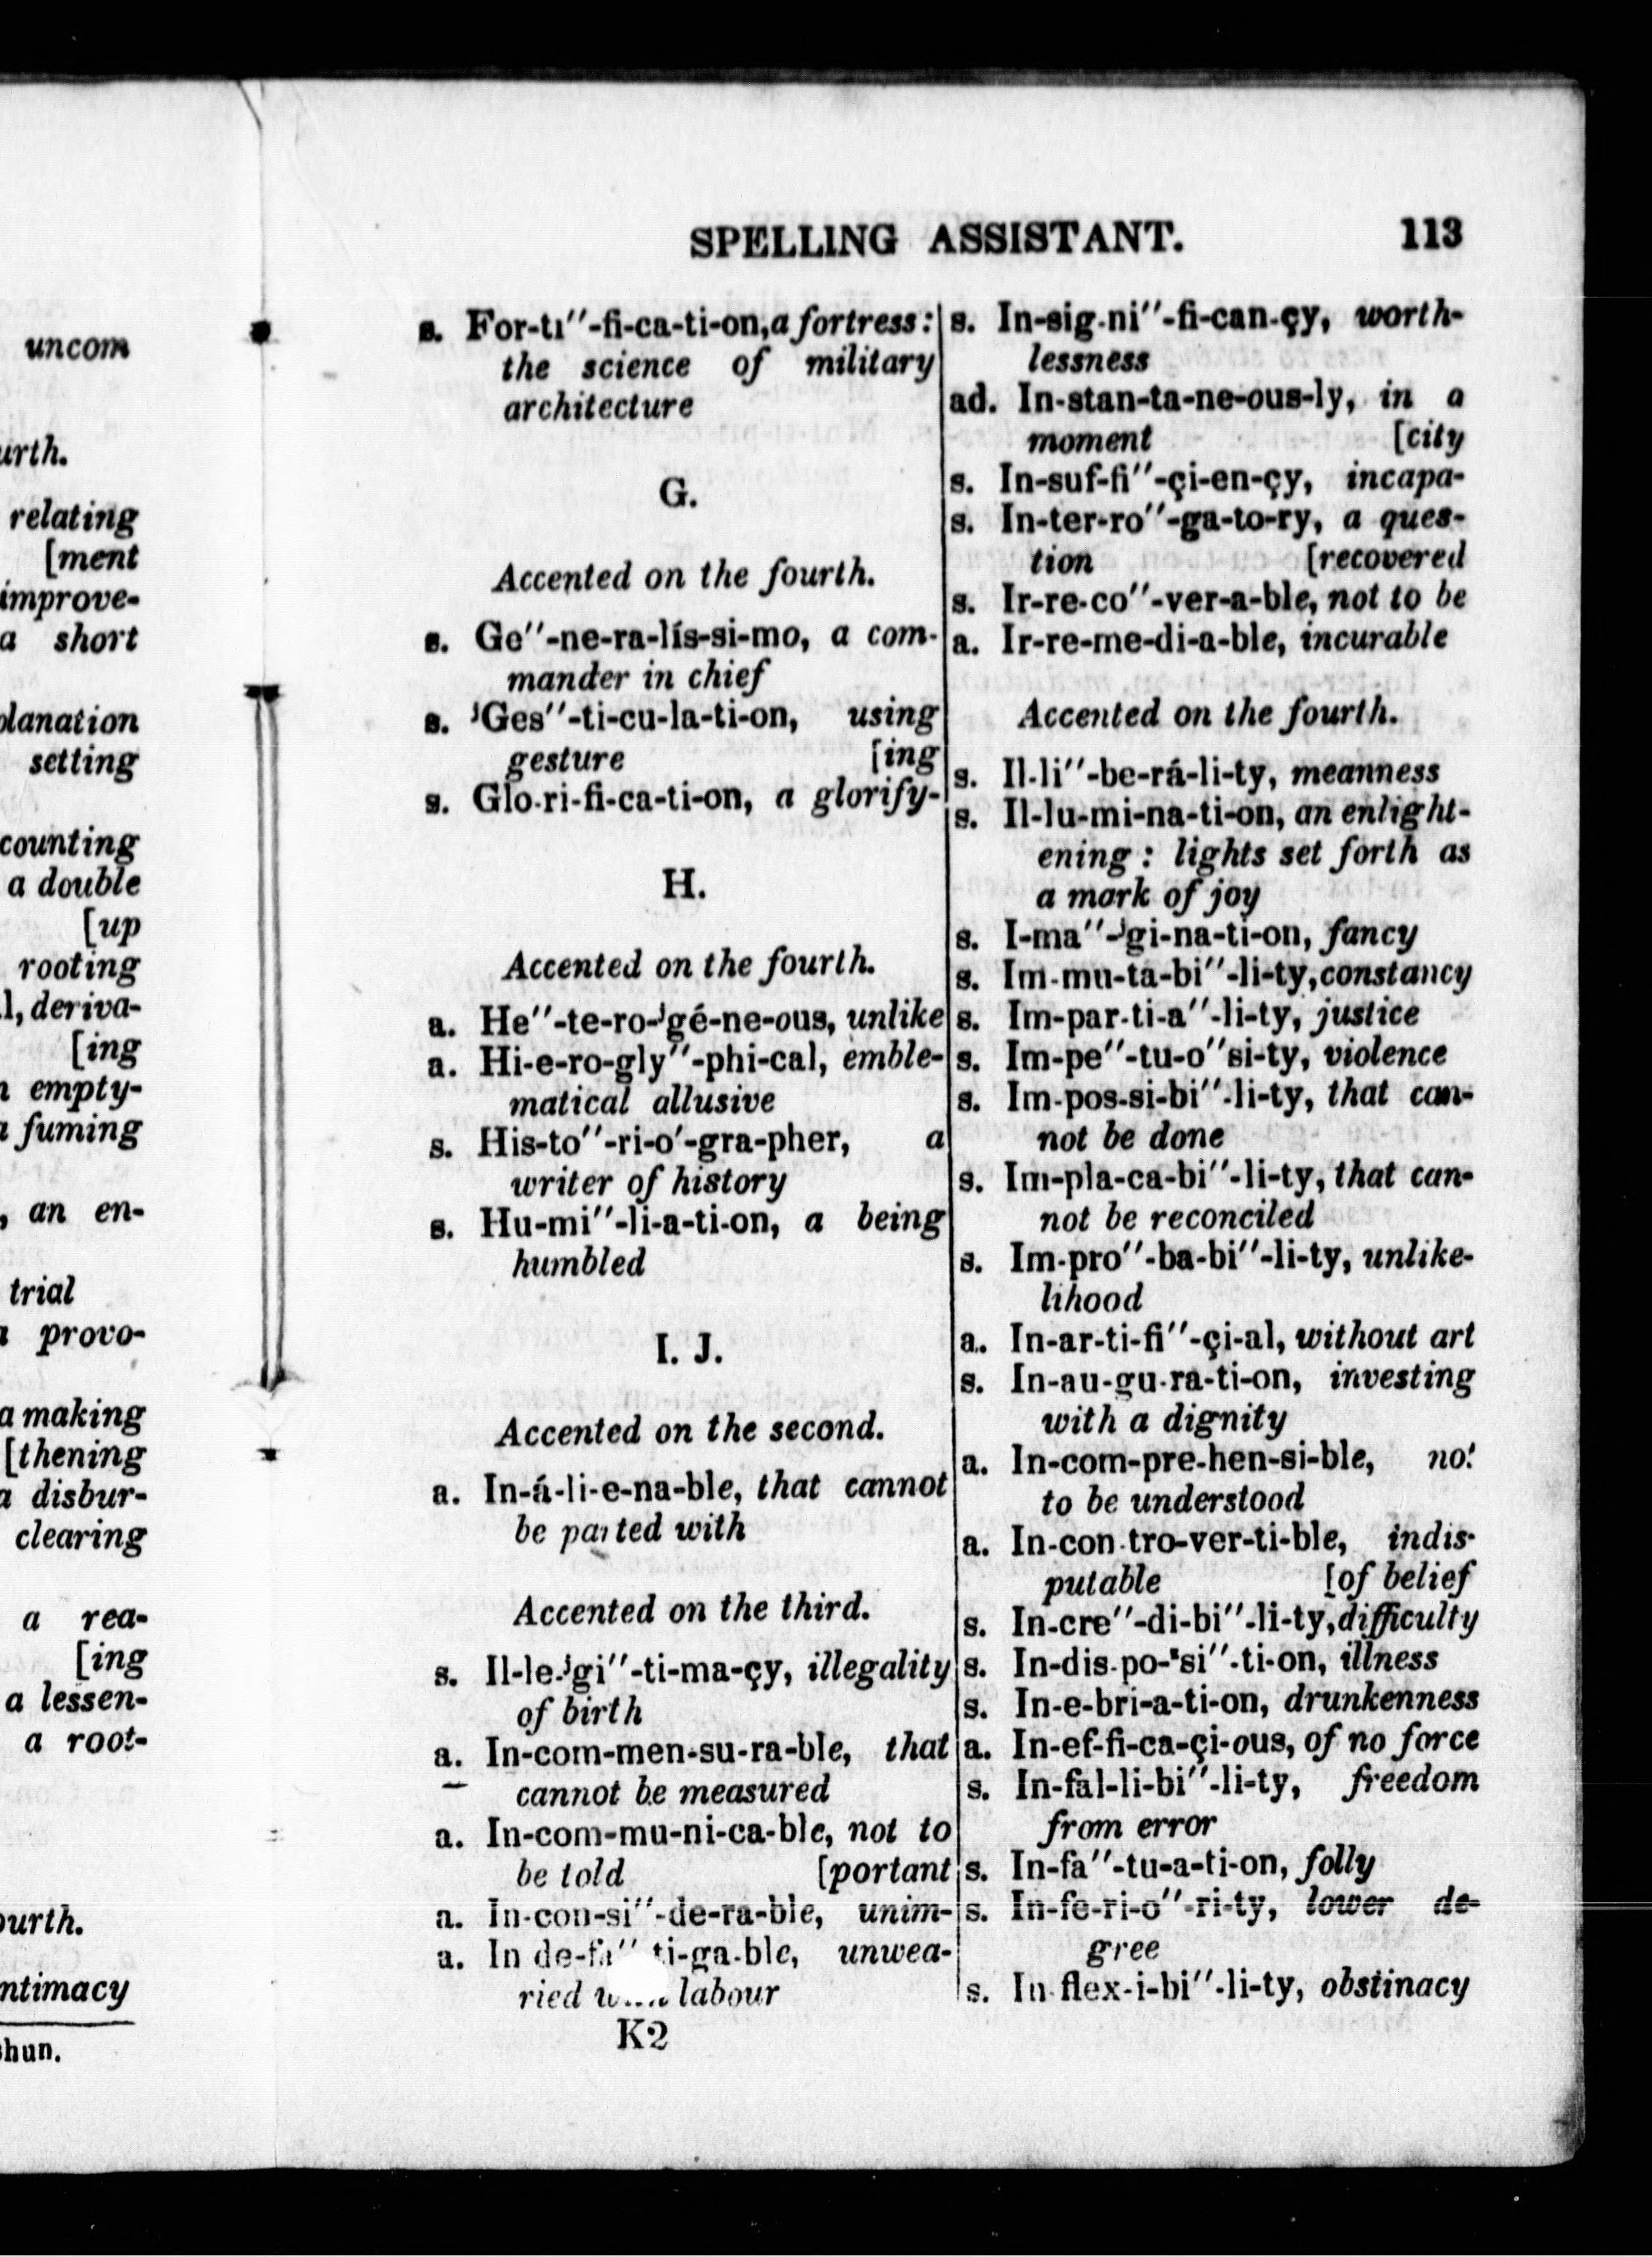 uncom
urth.
relating
[ment
improve-
a short
planation
setting
counting
a double
[up
rooting
l, deriva-
[ing
empty-
fuming
, an en-
trial
provo-
a making
[thening
a disbur-
clearing
a rea-
[ing
a lessen-
a root-
ourth.
ntimacy
shun.
SPELLING ASSISTANT. 113
s. For-ti″-fi-ca-ti-on, a fortress:
the science of military
architecture
G.
Accented on the fourth.
s. Ge″-ne-ra-lís-si-mo, a com-
mander in chief
s. ᴶGes″-ti-cu-la-ti-on, using
gesture [ing
s. Glo-ri-fi-ca-ti-on, a glorify-
H.
Accented on the fourth.
a. He″-te-ro-ᴶgé-ne-ous, unlike
a. Hi-e-ro-gly″-phi-cal, emble-
matical allusive
s. His-to″-ri-o′-gra-pher, a
writer of history
s. Hu-mi″-li-a-ti-on, a being
humbled
I. J.
Accented on the second.
a. In-á-li-e-na-ble, that cannot
be parted with
Accented on the third.
s. Il-le-ᴶgi″-ti-ma-çy, illegality
of birth
a. In-com-men-su-ra-ble, that
cannot be measured
a. In-com-mu-ni-ca-ble, not to
be told [portant
a. In-con-si″-de-ra-ble, unim-
a. In de-fa″ ti-ga-ble, unwea-
ried labour
K2
s. In-sig-ni″-fi-can-çy, worth-
lessness
ad. In-stan-ta-ne-ous-ly, in a
moment [city
s. In-suf-fi″-çi-en-çy, incapa-
s. In-ter-ro″-ga-to-ry, a ques-
tion [recovered
s. Ir-re-co″-ver-a-ble, not to be
a. Ir-re-me-di-a-ble, incurable
Accented on the fourth.
s. Il-li″-be-rá-li-ty, meanness
s. Il-lu-mi-na-ti-on, an enlight-
ening: lights set forth as
a mark of joy
s. I-ma″-ᴶgi-na-ti-on, fancy
s. Im-mu-ta-bi″-li-ty, constancy
s. Im-par-ti-a″-li-ty, justice
s. Im-pe″-tu-o″si-ty, violence
s. Im-pos-si-bi″-li-ty, that can-
not be done
s. Im-pla-ca-bi″-li-ty, that can-
not be reconciled
s. Im-pro″-ba-bi″-li-ty, unlike-
lihood
a. In-ar-ti-fi″-çi-al, without art
s. In-au-gu-ra-ti-on, investing
with a dignity
a. In-com-pre-hen-si-ble, not
to be understood
a. In-con-tro-ver-ti-ble, indis-
putable [of belief
s. In-cre″-di-bi″-li-ty, difficulty
s. In-dis-po-ᶻsi″-ti-on, illness
s. In-e-bri-a-ti-on, drunkenness
a. In-ef-fi-ca-çi-ous, of no force
s. In-fal-li-bi″-li-ty, freedom
from error
s. In-fa″-tu-a-ti-on, folly
s. In-fe-ri-o″-ri-ty, lower de-
gree
s. In-flex-i-bi″-li-ty, obstinacy